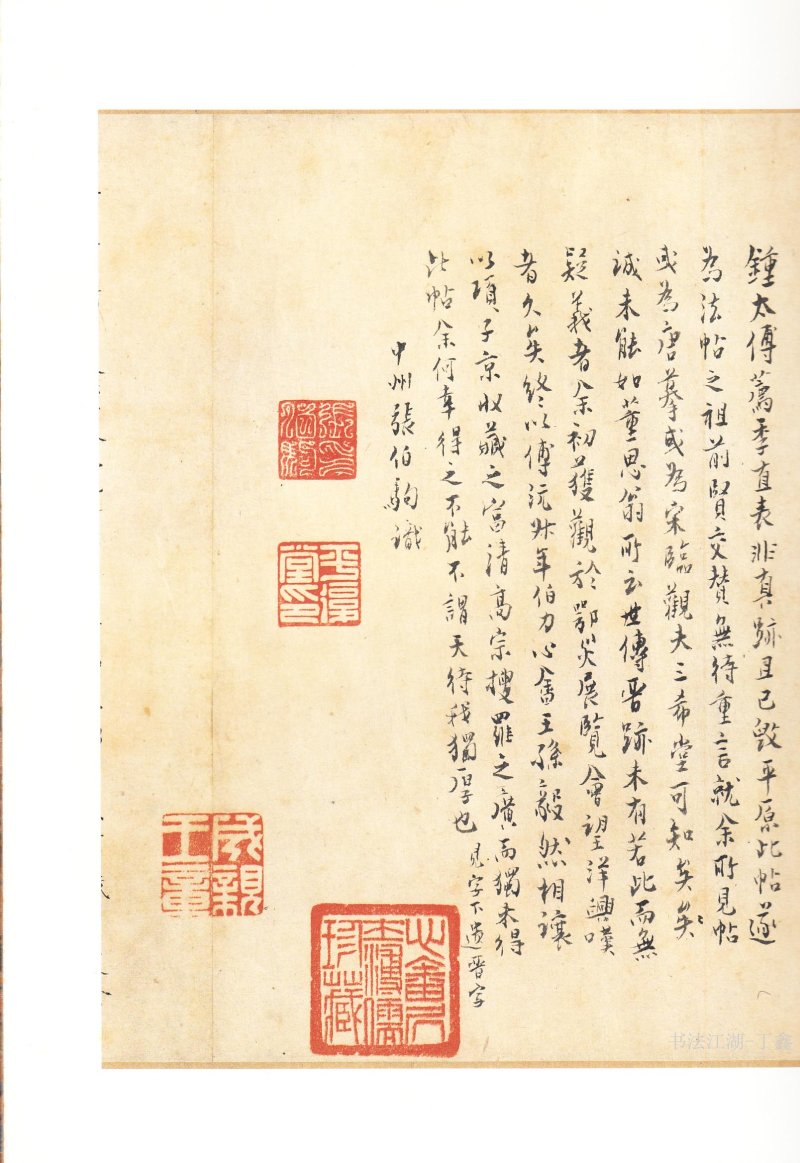 鍾太傅薦季直表非真跡且已毀平原此帖遂
為法帖之祖前賢交贊無待重言就余所見帖
或為唐摹或為宋臨觀夫三希堂可知矣矣
誠未能如董思翁所云世傳晉跡未有若此而無
疑義者余初獲觀於鄂災展覽會望洋興嘆
者久矣終以傅沅叔年伯力心畬王孫毅然相讓
以項子京收藏之富清高宗搜羅之廣而獨未得
此帖余何幸得之不能不謂天待我獨厚也
見字下遺晉字
中州張伯駒識
張伯駒
平復堂印
成親王章
心畬
溥儒
珍藏
书法江湖-丁鑫